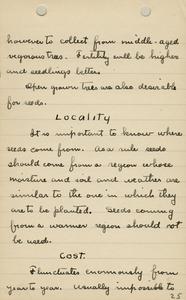 however to collect from middle-aged
vigorous trees. Fertility will be higher
and seedlings better.
Open grown trees are also desirable
for seeds.
Locality
It is important to know where
seeds come from. As a rule seeds
should come from a region whose
moisture and soil and weather are
similar to the one in which they
are to be planted. Seeds coming
from a warmer region should not
be used.
Cost.
Fluctuates enormously from
year to year. Usually impossible to
25